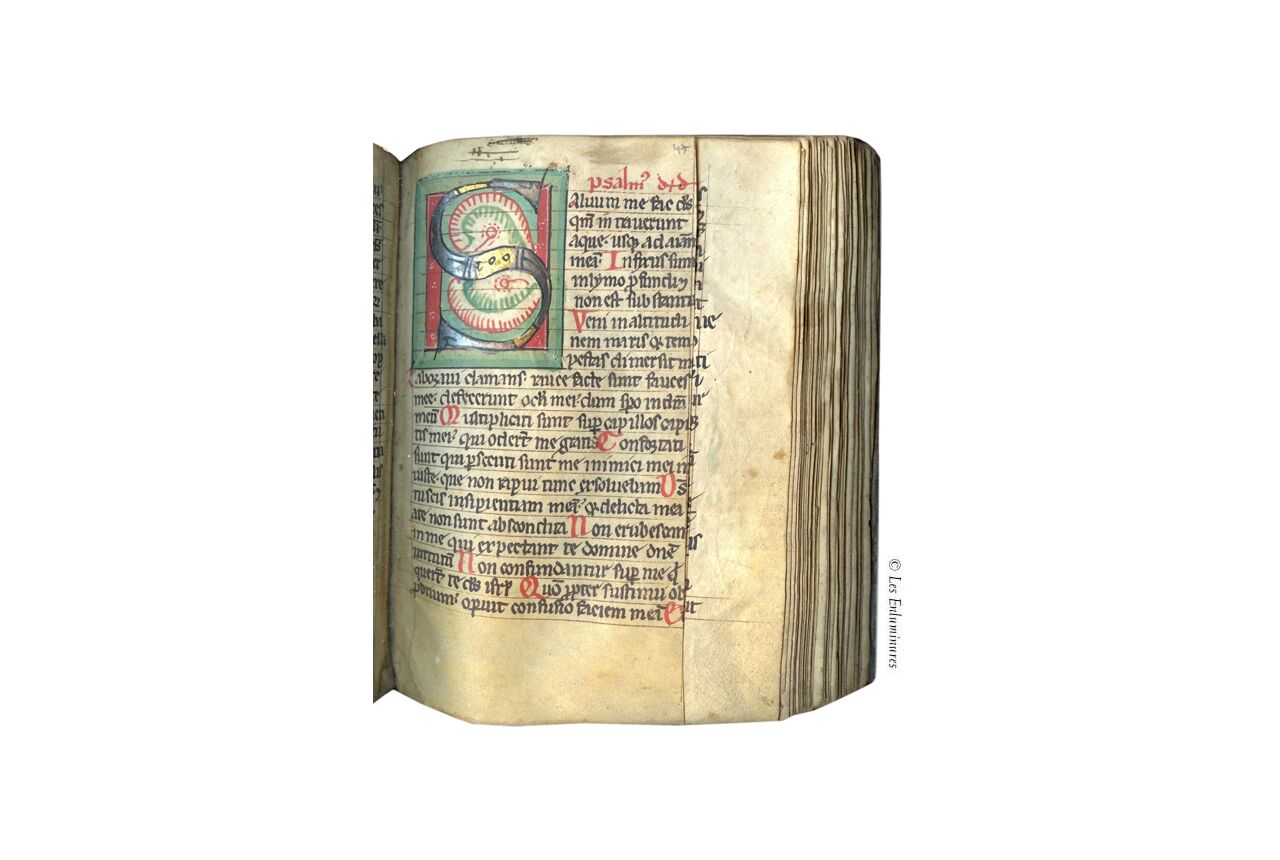 47
psalm᷒ dd
S Aluum me fac ds
qm̄ intrauerunt
aque. usq; ad aīam
meā. Infixus sum
in lymo ꝓfundi ⁊
non est substantia
Veni in altitudi
nem maris ⁊ tem
pestas dimersit me
Laboraui clamans. rauce facte sunt fauces
mee. defecerunt ocli mei. dum spo in dm̄
meū Multiplicati sunt sup capillos capi
tis mei. qui odert me gratis Confortati
sunt qui ꝑsecuti sunt me inimici mei in
iuste. que non rapui tunc exsoluebam Ds
tu scis insipientiam meā. ⁊ delicta mea
a te non sunt abscondita Non erubescant
in me qui expectant te domine dn̄e
uirtutū Non confundantur sup me q̄
querr̄t te ds isrl Qm̄ ꝓpter te sustinui ob
ꝓbrium. opuit confusio faciem meā
© Les Enluminures